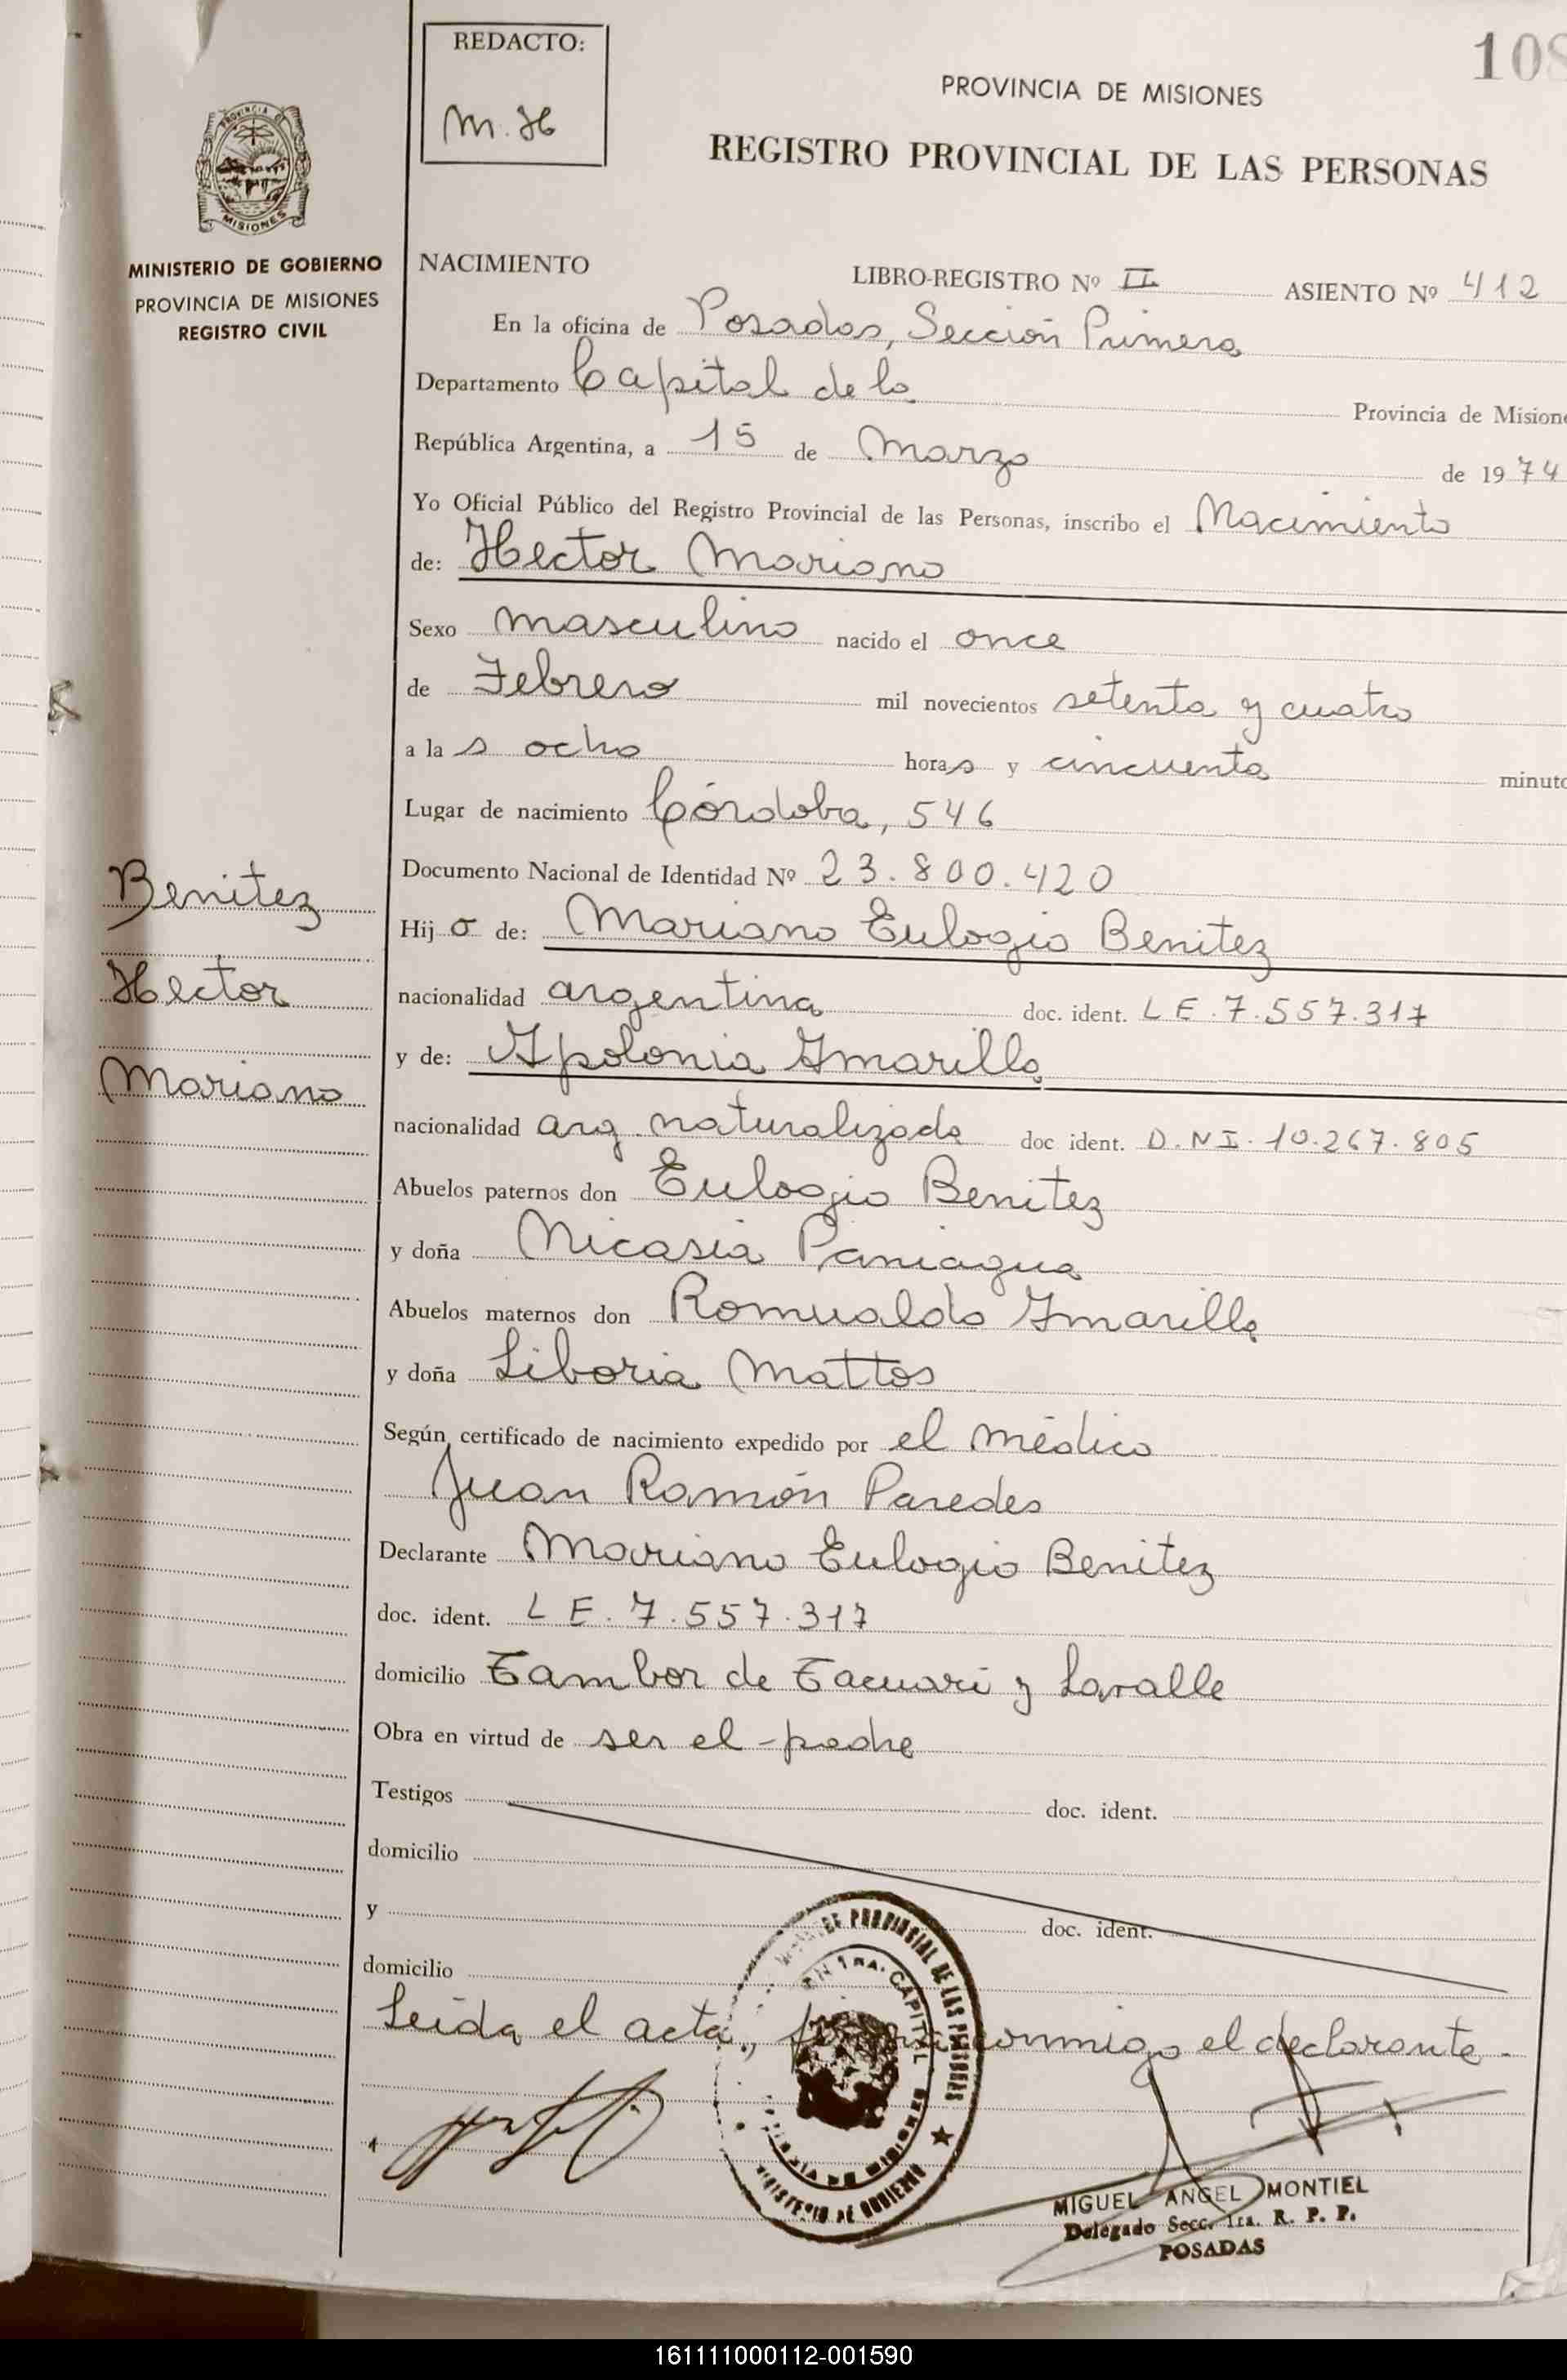 REDACTO:
M. H
108
PROVINCIA DE MISIONES
REGISTRO PROVINCIAL DE LAS PERSONAS
PROVINCIA DE
MISIONES
MINISTERIO DE GOBIERNO
PROVINCIA DE MISIONES
REGISTRO CIVIL
NACIMIENTO LIBRO-REGISTRO Nº II ASIENTO Nº 412
En la oficina de Posadas, Sección Primera
Departamento Capital de la Provincia de Misione
República Argentina, a 15 de Marzo de 1974
Yo Oficial Público del Registro Provincial de las Personas, inscribo el Nacimiento
de: Hector Mariano
Sexo masculino nacido el once
de Febrero mil novecientos setenta y cuatro
a las ocho horas y cincuenta minuto
Lugar de nacimiento Córdoba, 546
Documento Nacional de Identidad Nº 23.800.420
Benitez
Hijo de: Mariano Eulogio Benitez
Hector
nacionalidad argentina doc. ident. L E. 7.557.317
y de: Apolonia Amarilla
Mariano
nacionalidad arg. naturalizada doc ident. D.N I. 10.267.805
Abuelos paternos don Eulogio Benitez
y doña Nicasia Paniagua
Abuelos maternos don Romualdo Amarilla
y doña Liboria Mattos
Según certificado de nacimiento expedido por el médico
Juan Ramón Paredes
Declarante Mariano Eulogio Benitez
doc. ident. L E. 7.557.317
domicilio Tambor de Tacuari y Lavalle
Obra en virtud de ser el padre
Testigos doc. ident.
domicilio
y doc. ident.
domicilio
Leída el acta, firma conmigo el declarante.
PROVINCIAL DE LAS PERSONAS
1RA. CAPITAL
MINISTERIO DE GOBIERNO
MIGUEL ANGEL MONTIEL
Delegado Secc. 1ra. R. P. P.
POSADAS
161111000112-001590